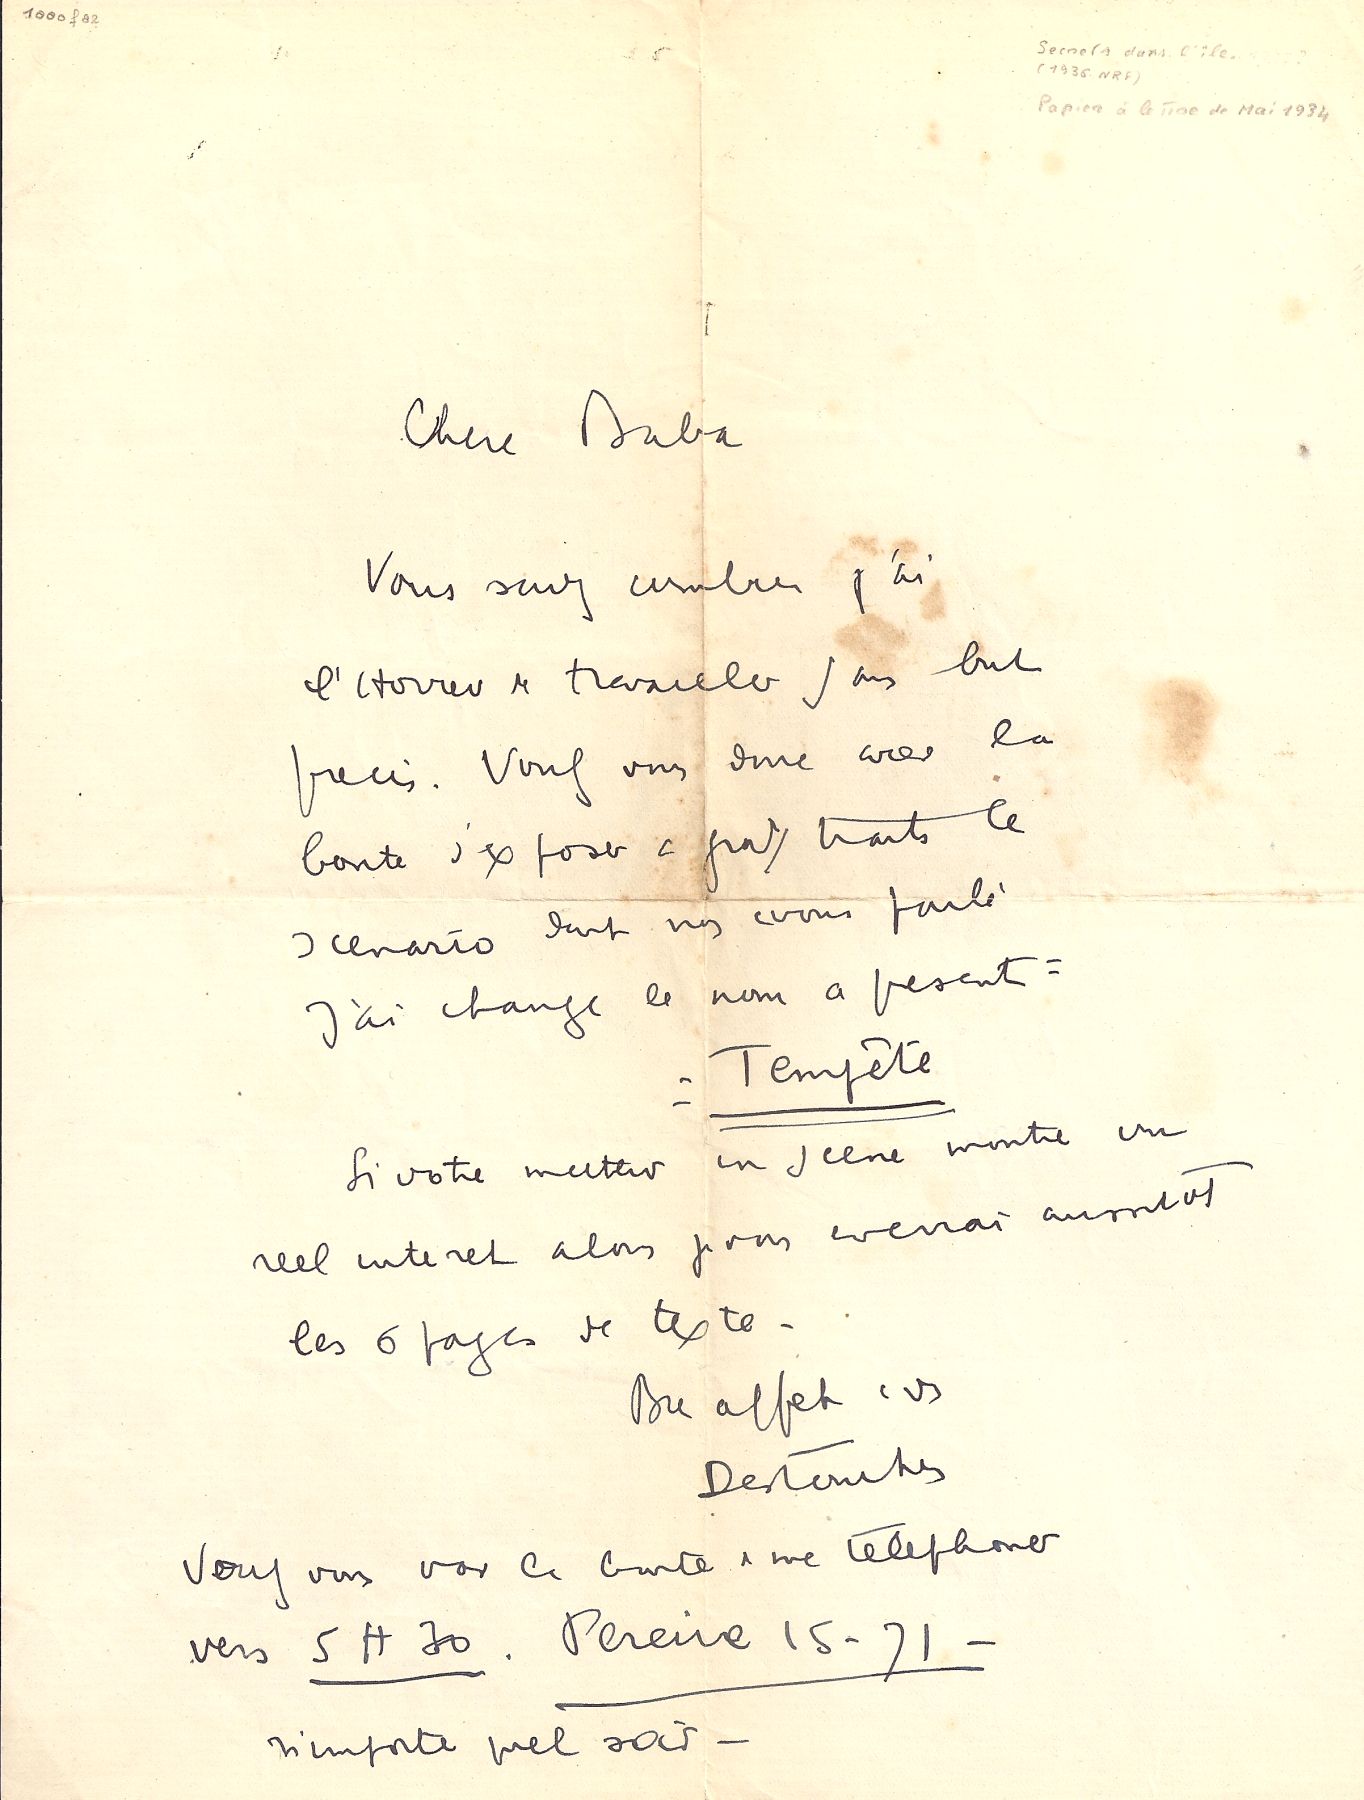 1000f 82
Secrets dans l'île.
(1936 NRF)
Papier à lettre de Mai 1934
Chere Baba
Vous savez combien j'ai
l'Horreur de travailler sans but
precis. Voulez vous donc avoir la
bonte d'exposer a grands traits le
scenario dont nous avons parlé
J'ai change le nom a present =
= Tempête
Si votre metteur en scene montre un
reel interet alors je vous enverrai aussitôt
les 6 pages de texte -
Bien affect à vs
Destouches
Voulez vous avoir la bonte de me téléphoner
vers 5 H 30. Pereire 15-71 -
n'importe quel soir -